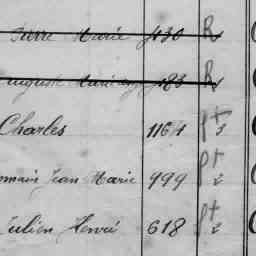 Pierre Marie 430 R
Auguste Marie 483 R
Charles 1164 pt 3
Romain Jean Marie 999 pt 2
Julien Henri 618 pt 2